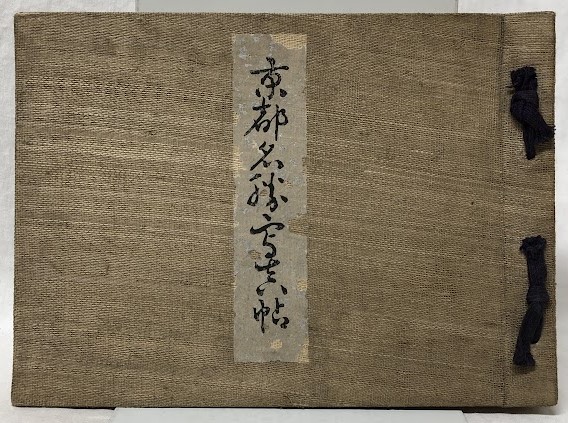 京都名勝写真帖